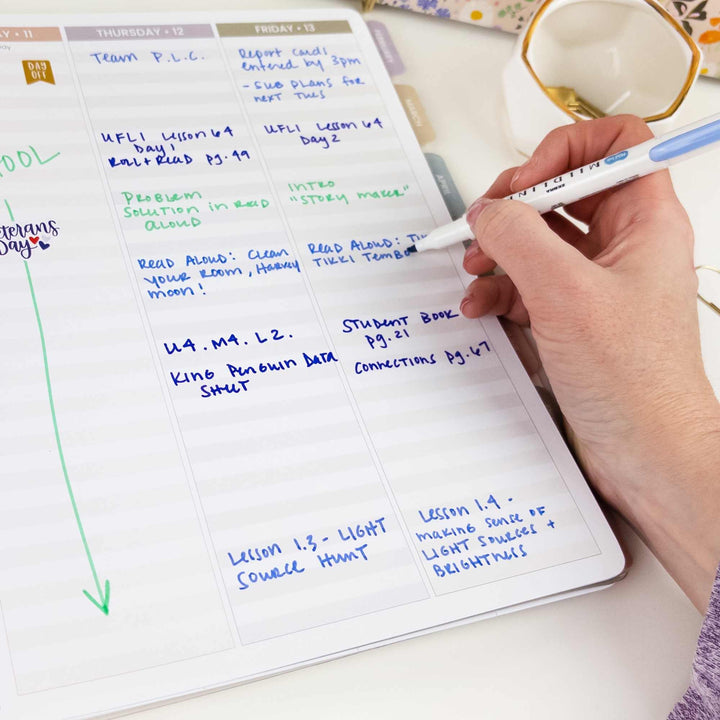 Y • 11
THURSDAY • 12
FRIDAY • 13
DAY
OFF
OOL
eterans
Day
Team P.L.C.
UFLI Lesson 64
Day 1
ROLL + READ pg. 49
PROBLEM
SOLUTION IN READ
ALOUD
READ ALOUD: CLEAN
YOUR ROOM, HARVEY
MOON!
U4. M4. L2.
KING PENGUIN DATA
SHEET
LESSON 1.3 - LIGHT
SOURCE HUNT
Report cards
entered by 3pm
- SUB PLANS FOR
NEXT TUES
UFLI LESSON 64
DAY 2
INTRO
"STORY MAKER"
READ ALOUD:
TIKKI TEMBO
STUDENT BOOK
pg. 21
CONNECTIONS pg. 67
LESSON 1.4 -
MAKING SENSE OF
LIGHT SOURCES +
BRIGHTNESS
MARCH
APRIL
ZEBRA
MILDLINER